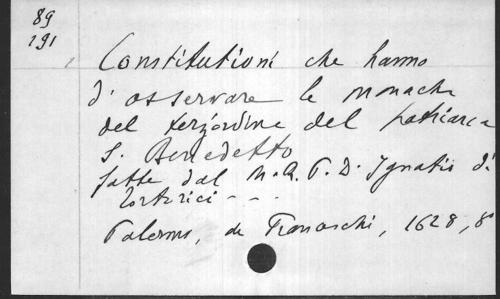 89
191
Constitutioni che hanno
d'osservare le monache
del terz'ordine del patriarca
S. Benedetto
fatte dal M.R.P.D. Ignatio di
Tortorici - - .
Palermo, de Franceschi, 1628, 8°